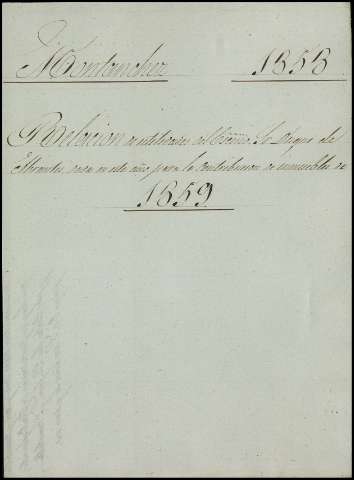 Montanchez 1858
Relacion de utilidades del Excmo. Sr. Duque de
Abrantes, dada en este año para la contribucion de inmuebles de
1859